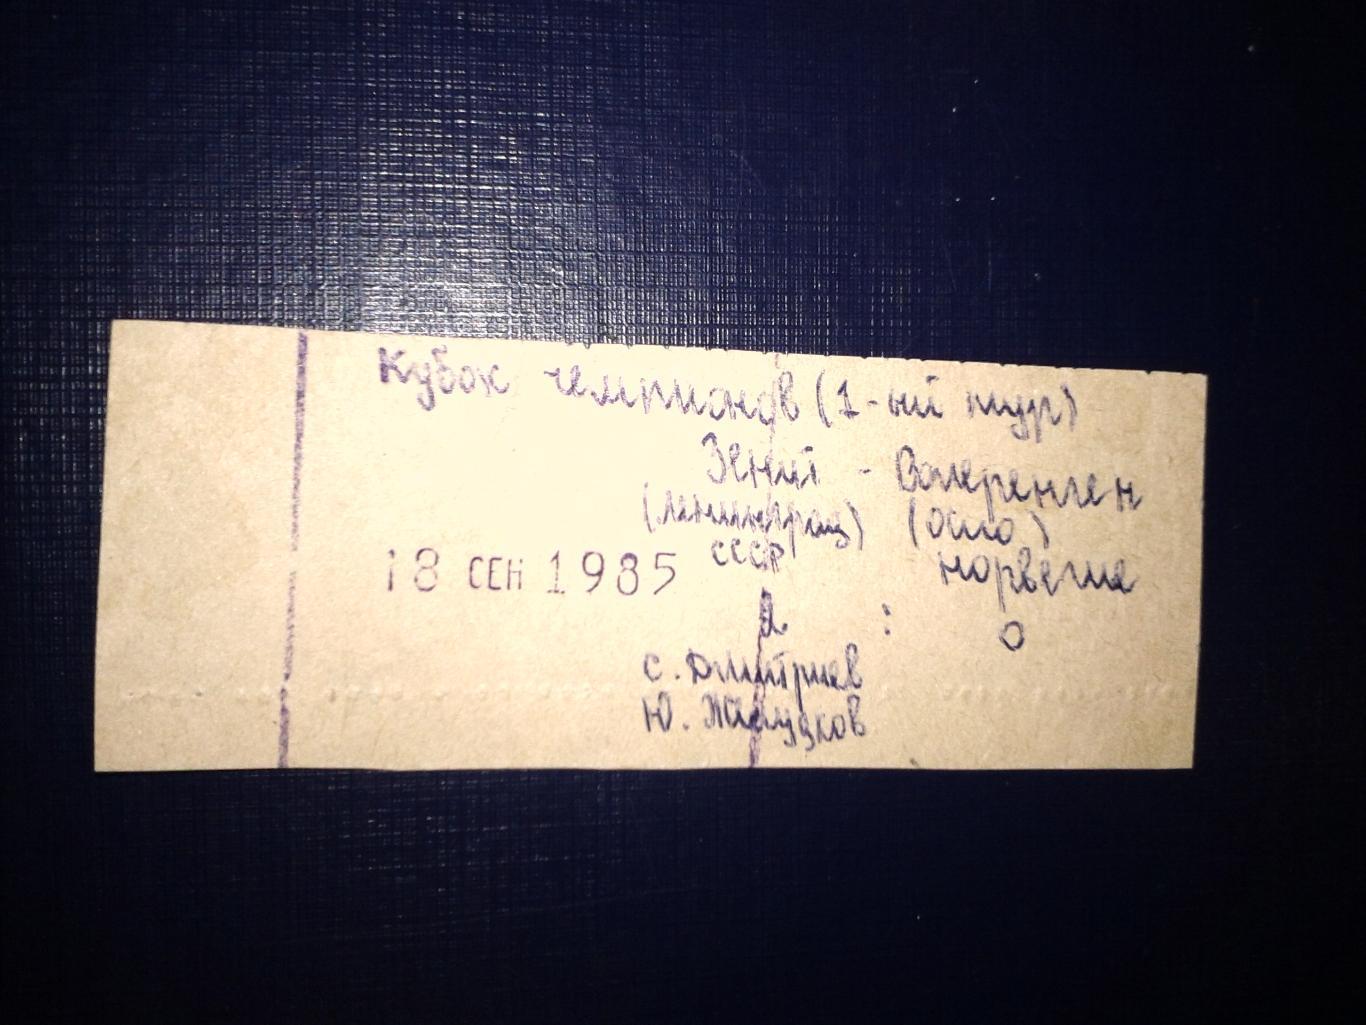 Кубок чемпионов (1-ый тур)
Зенит - Валеренген
(Ленинград) (Осло)
СССР Норвегия
18 СЕН 1985
2 : 0
С. Дмитриев
Ю. Желудков